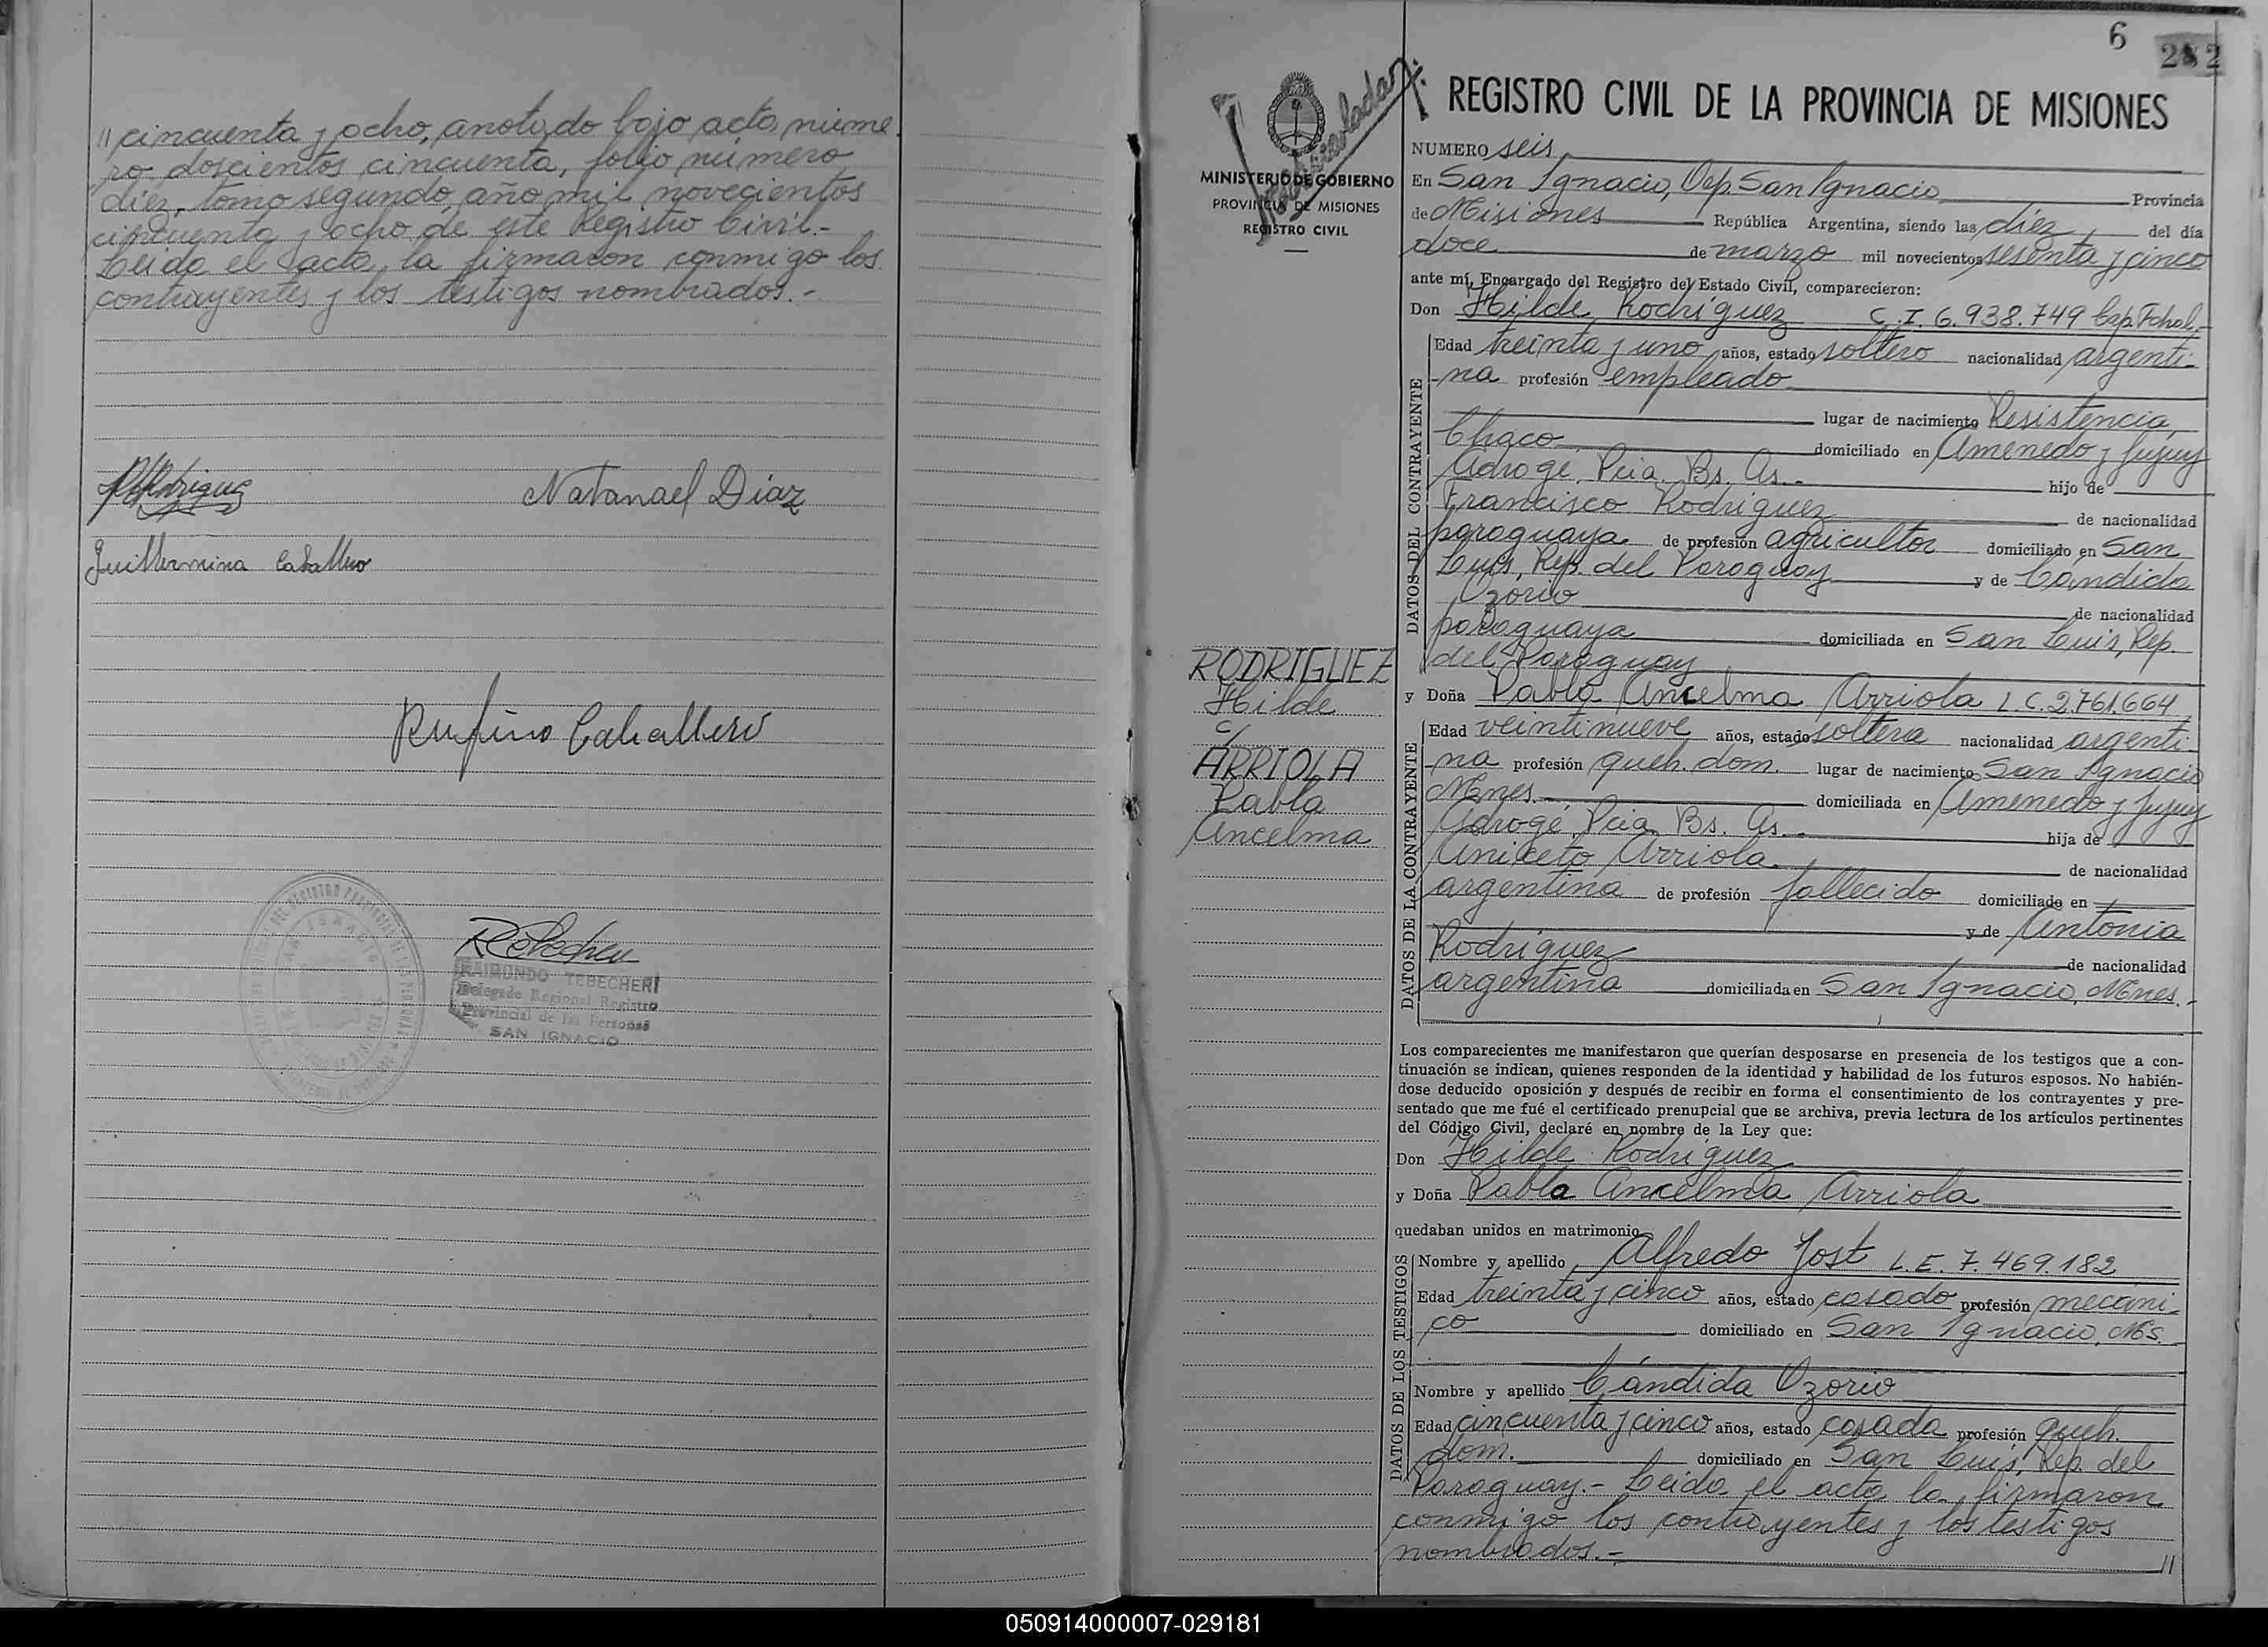 " cincuenta y ocho, anotado bajo acta núme
ro doscientos cincuenta, folio número
diez, tomo segundo año mil novecientos
cincuenta y ocho de este Registro Civil.-
Leida el acta, la firmaron conmigo los
contrayentes y los testigos nombrados.-
Natanael Diaz
Guillermina Caballero
Rufino Caballero
RAIMUNDO TEBECHERI
Delegado Regional Registro
Provincial de las Personas
SAN IGNACIO
6
282
REGISTRO CIVIL DE LA PROVINCIA DE MISIONES
MINISTERIO DE GOBIERNO
PROVINCIA DE MISIONES
REGISTRO CIVIL
NUMERO seis
En San Ignacio, Dep. San Ignacio Provincia
de Misiones República Argentina, siendo las diez del día
doce de marzo mil novecientos sesenta y cinco
ante mí, Encargado del Registro del Estado Civil, comparecieron:
Don Hilde Rodriguez C.I. 6.938.749 Cap. Fdral.-
DATOS DEL CONTRAYENTE
Edad treinta y uno años, estado soltero nacionalidad argenti-
na profesión empleado
lugar de nacimiento Resistencia,
Chaco domiciliado en Amenedo y Jujuy
Adrogé, Pcia. Bs. As.- hijo de
Francisco Rodriguez de nacionalidad
paraguaya de profesión agricultor domiciliado en San
Luis, Rep. del Paraguay y de Cándida
Ozorio de nacionalidad
paraguaya domiciliada en San Luis, Rep.
del Paraguay
RODRIGUEZ
Hilde
c/
ARRIOLA
Pabla
Ancelma
y Doña Pabla Ancelma Arriola L.C. 2.761.664
DATOS DE LA CONTRAYENTE
Edad veintinueve años, estado soltera nacionalidad argenti-
na profesión queh. dom. lugar de nacimiento San Ignacio
Mnes. domiciliada en Amenedo y Jujuy
Adrogé, Pcia. Bs. As.- hija de
Aniceto Arriola de nacionalidad
argentina de profesión fallecido domiciliado en
y de Antonia
Rodriguez de nacionalidad
argentina domiciliada en San Ignacio, Mnes.-
Los comparecientes me manifestaron que querían desposarse en presencia de los testigos que a con-
tinuación se indican, quienes responden de la identidad y habilidad de los futuros esposos. No habién-
dose deducido oposición y después de recibir en forma el consentimiento de los contrayentes y pre-
sentado que me fué el certificado prenupcial que se archiva, previa lectura de los artículos pertinentes
del Código Civil, declaré en nombre de la Ley que:
Don Hilde Rodriguez
y Doña Pabla Ancelma Arriola
quedaban unidos en matrimonio
DATOS DE LOS TESTIGOS
Nombre y apellido Alfredo Jost L.E. 7.469.182
Edad treinta y cinco años, estado casado profesión mecáni-
co domiciliado en San Ignacio, Ms.
Nombre y apellido Cándida Ozorio
Edad cincuenta y cinco años, estado casada profesión queh.
dom. domiciliado en San Luis, Rep. del
Paraguay.- Leida el acta la firmaron
conmigo los contrayentes y los testigos
nombrados.- //
050914000007-029181